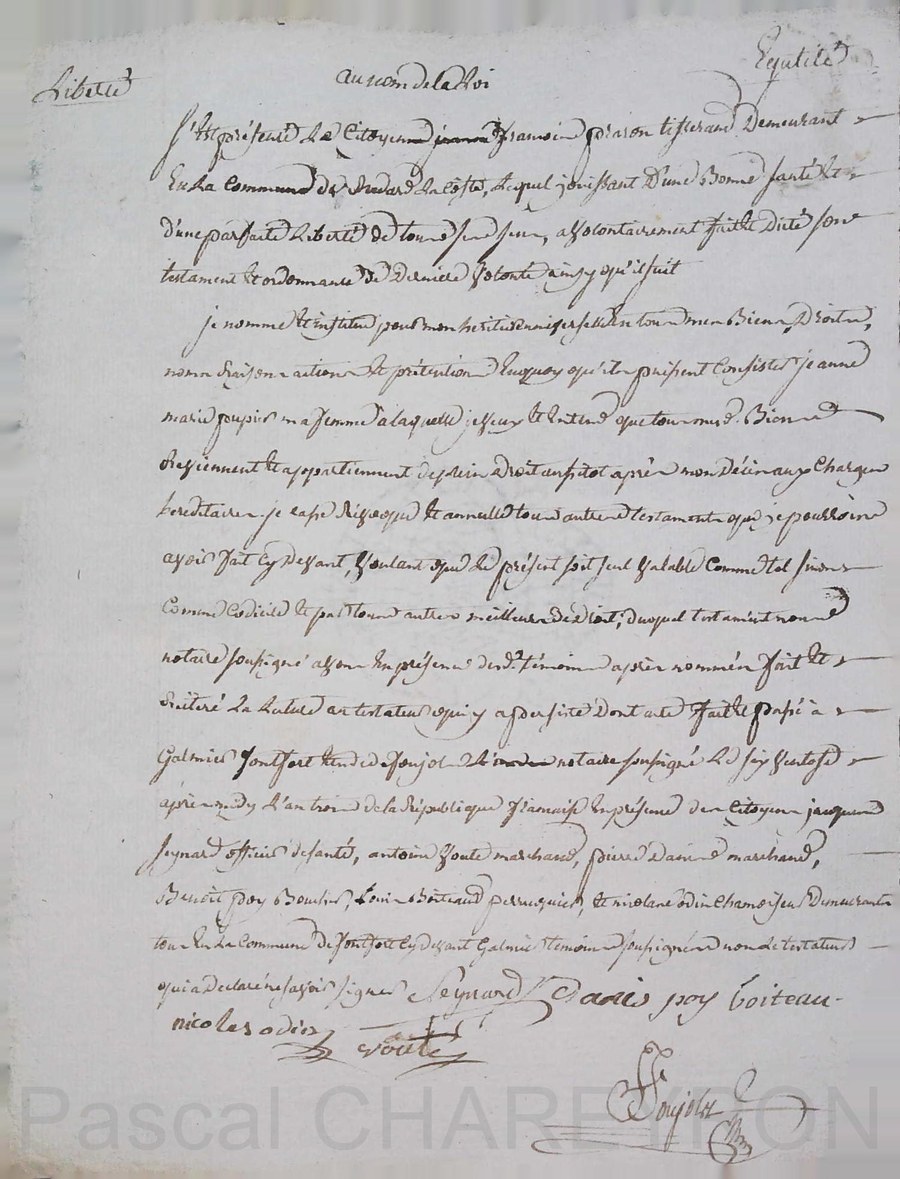 Liberté au nom de la Loi Egalité
S'est présenté Le Citoyen françois tisserand Demeurant
En La Commune de La Coste, Lequel jouissant D'une Bonne santé et
d'une parfaite Liberté de tous ses sens, a volontairement fait et dicté son
testament et ordonnance de Derniere volonté ainsy qu'il suit
je nomme et institue pour mon heritiere universelle en tous mes Biens, Droits,
noms Raisons actions et prétentions En quoy qu'ils puissent Consister jeanne
marie pupier ma femme à laquelle je veux et Entend que tous mesd. Biens
Reviennent et appartiennent de plein Droit aussitot après mon Décès aux Charges
hereditaires. je casse Révoque et annulle tous autres testaments que je pourrois
avoir fait Cy Devant, Voulant que Le présent soit seul Valable Comme tel sinon
Comme Codicile et par tous autres meilleurs de Droit; duquel testament nous
notaire soussigné avons En présence desd. témoins après nommés fait et
Réiteré La Lecture au testateur qui y a persisté Dont acte fait et passé à
Galmier fontfort Etude de Ponjol notaire soussigné Le six Ventose
après midy L'an trois de la République française En présence des Citoyens jacques
Peynard officier de santé, antoine Voute marchand, pierre marchand,
Benoit poy Boucher, Louis Boiteaud perruquier, et nicolas odin Chamoiseur Demeurants
tous En La Commune de fontfort Cy devant Galmier témoins soussignés non Le testateur
qui a Declaré ne savoir signer Peynard poy boiteau
nicolas odin voute
Pascal CHAREYRON